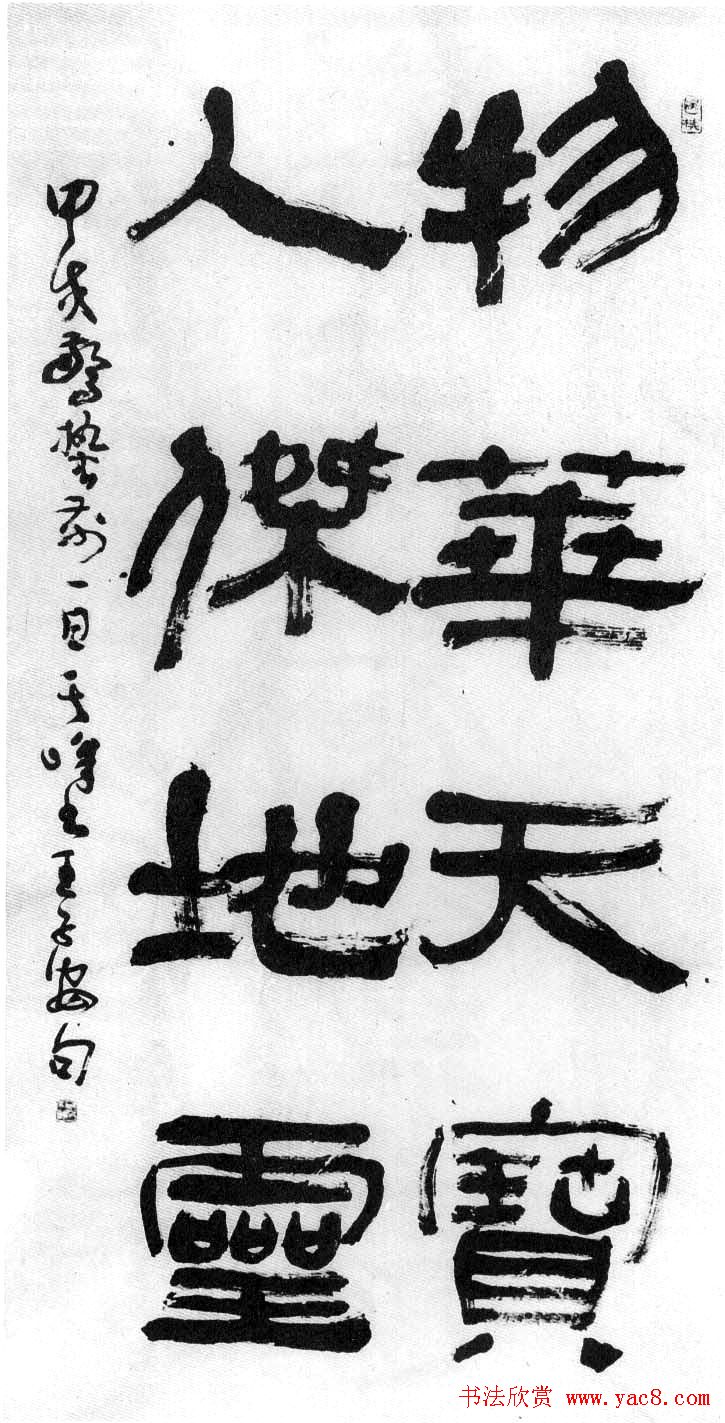 物華天寶
人傑地靈
甲戌驚蟄前一日書王子安句
书法欣赏 www.yac8.com